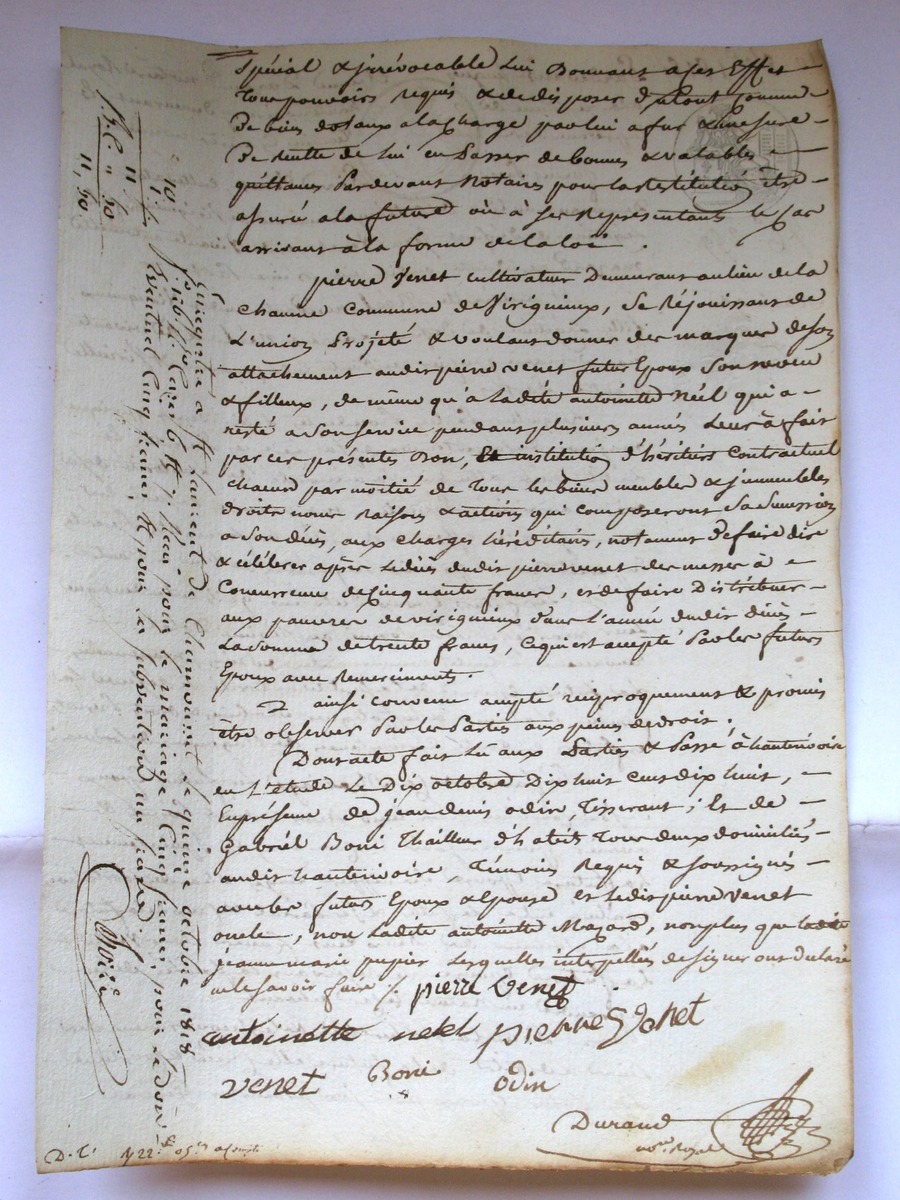 Spécial & irrévocable lui Donnant a ces Effet
Tous pouvoirs Requis & de disposer du tout comme
De biens dotaux a la charge par lui a fur & mesure
De recette de lui en Passer de bonnes & valables
quittances Pardevant Notaires pour la Restitution être
assuré a la future où à ses Représentants le cas
arrivant à la forme de la loi.
pierre Venet cultivateur Demeurant au lieu de la
Chaume Commune de Virigneux, Se Réjouissant de
L'union Projeté & voulant donner des marques de son
attachement audit pierre venet futur Epoux Son neveu
& filleux, de même qu'à ladite antoinette Néel qui a
resté a Son Service pendant plusieurs années Leur à fait
par ces présentes Don, Et institution d'héritiers Contractuel
chacun par moitié de Tous les biens meubles & immeubles
droits noms Raisons & actions qui composeront Sa Succession
a Son décès, aux charges héréditaires, notament De faire dire
& célébrer après le décès dudit pierre venet des messes à
Concurrence de Cinquante francs, et de faire Distribuer
aux pauvres de virigneux dans l'année dudit décès
La Somme de trente francs, Ce qui est accepté Par les futurs
Epoux avec Remerciments.
ainsi convenu accepté réciproquement & promis
être observer Par les Parties aux peines de droit.
Dont acte fait Lu aux Parties & Passé à hauterivoire
en L'étude Le Dix octobre Dix huit cent dix huit,
En présence de jean denis odin, Tisserant; Et de
Gabriël Boni Thailleur d'habits Tous deux domiciliés
audit hauterivoire, Témoins Requis & Soussignés
avec les futurs Epoux & Epouse et Ledit pierre Venet
oncle, non Ladite antoinette Mazard, non plus que ladite
jeanne marie pupier Lesquelles interpellés de signer ont déclaré
ne le savoir faire /. pierre Venet
antoinette neel pierre Venet
venet Boni odin
Durand
no.re Royal
D. C. 22 05 a compte
Enregistré a St Laurent de Chamousset le quinze octobre 1818
pour le mariage Cinq francs, pour le don
Eventuel Cinq francs & pour la subvention un franc.
10.
1.
11
" 50
11, 50